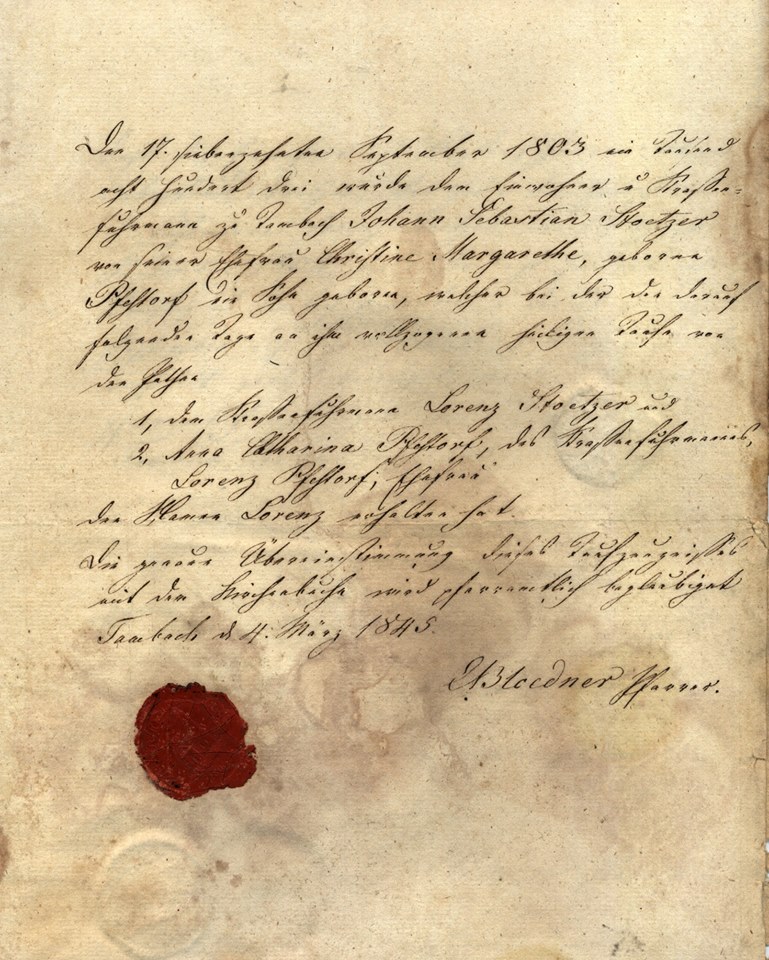 Den 17. siebenzehnten September 1803 ein Tausend
acht hundert drei wurde dem Einwohner u Krossen-
fuhrmann zu Tambach Johann Sebastian Stoetzer
von seiner Ehefrau Christine Margarethe, geborne
Pfestorf ein Sohn geboren, welcher bei der den darauf
folgenden Tage an ihm vollzogenen heiligen Taufe von
den Pathen
1, dem Krossenfuhrmann Lorenz Stoetzer und
2, Anna Catharina Pfestorf, des Krossenfuhrmannes,
Lorenz Pfestorf, Ehefrau
den Namen Lorenz erhalten hat.
Die genaue Übereinstimmung dieses Taufzeugnisses
mit dem Kirchenbuche wird pfarramtlich beglaubiget
Tambach d 4. März 1845.
Bloedner Pfarrer.